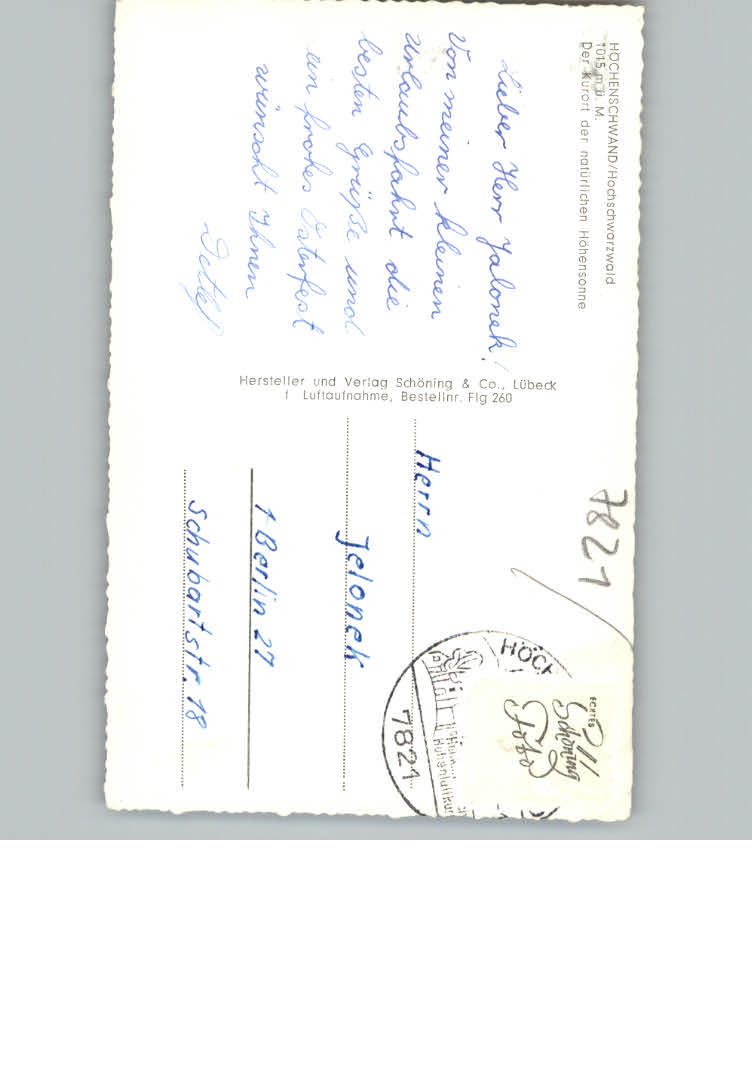 HÖCHENSCHWAND/Hochschwarzwald
1015 m ü. M.
Der Kurort der natürlichen Höhensonne
Lieber Herr Jalonek!
Von meiner kleinen
Urlaubsfahrt die
besten Grüße und
ein frohes Osterfest
wünscht Ihnen
Detlef
Hersteller und Verlag Schöning & Co., Lübeck
f Luftaufnahme, Bestellnr. Flg 260
7821
HÖCH
7821
Höhenluftkur
ECHTES
Schöning
Foto
Herrn
Jelonek
1 Berlin 27
Schubartstr. 18